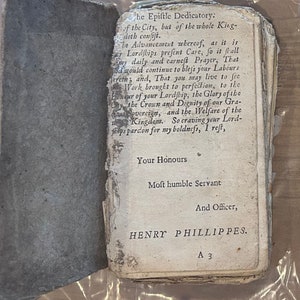 The Epistle Dedicatory.
of the City, but of the whole King-
dom consist.
The Advancement whereof, as it is
your Lordships present Care, so it shall
my daily and earnest Prayer, That
God would continue to bless your Labours
herein; and, That you may live to see
Work brought to perfection, to the
Honour of your Lordship, the Glory of the
the Crown and Dignity of our Gra-
Sovereign, and the Welfare of the
Kingdom. So craving your Lord-
ships pardon for my boldness, I rest,
Your Honours
Most humble Servant
And Officer,
HENRY PHILLIPPES.
A 3